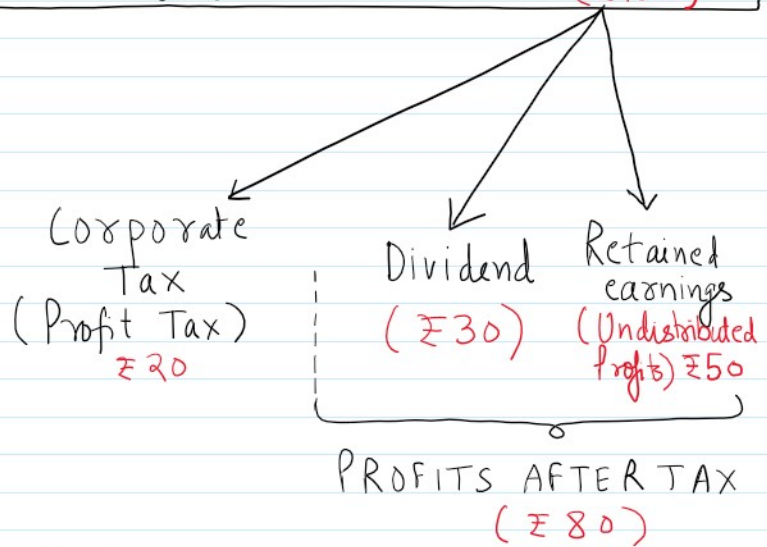 Corporate
Tax
(Profit Tax)
₹20
Dividend
(₹30)
Retained
earnings
(Undistributed
Profits) ₹50
PROFITS AFTER TAX
(₹80)